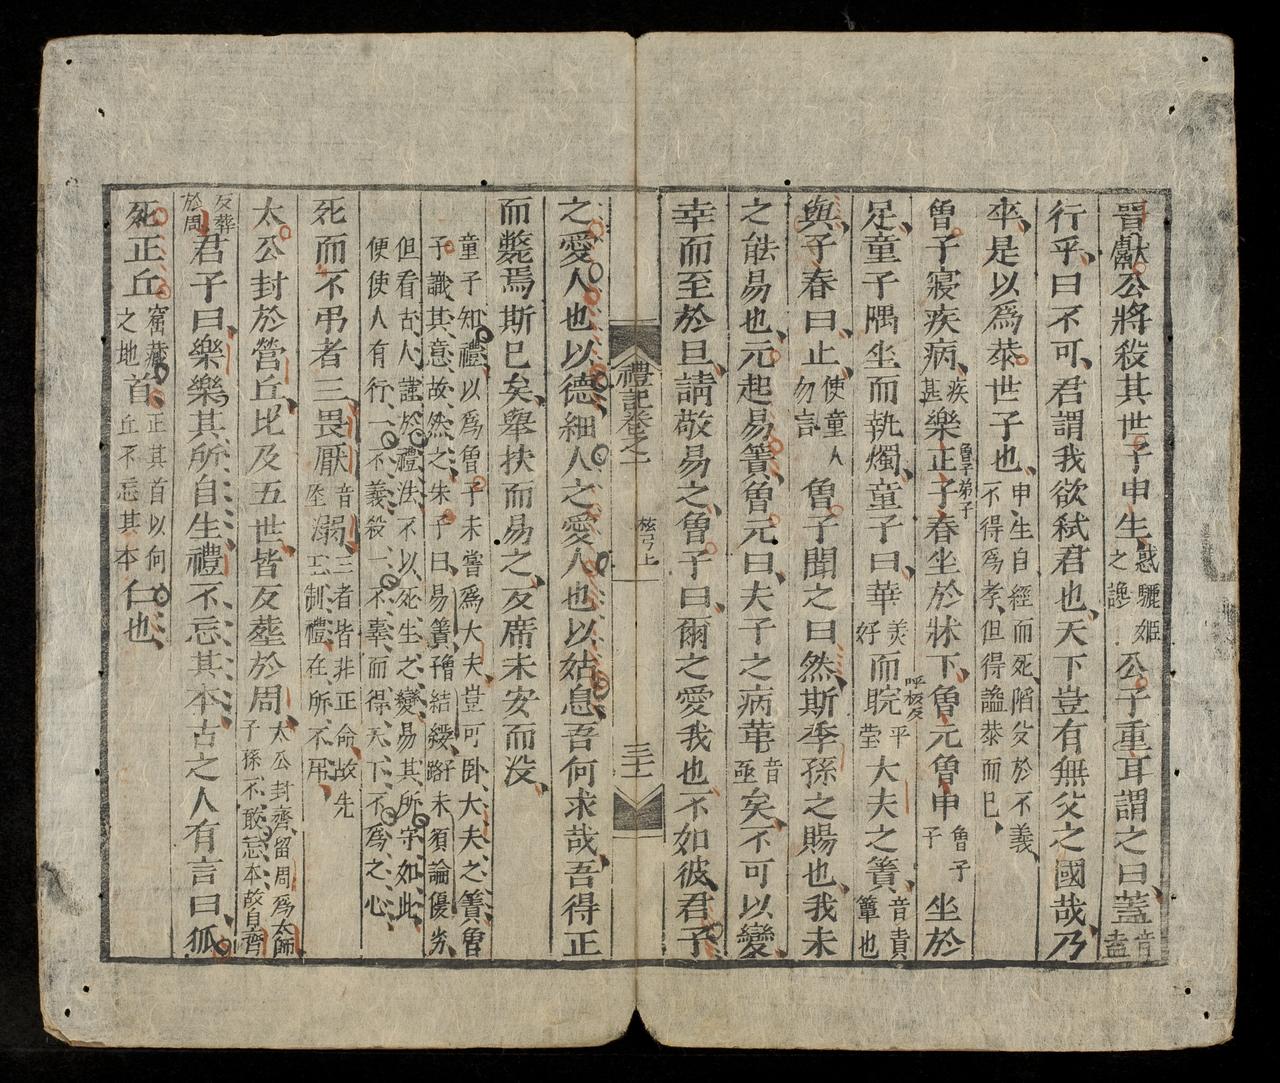 晉獻公將殺其世子申生惑驪姬之讒公子重耳謂之曰蓋音盍
行乎曰不可君謂我欲弒君也天下豈有無父之國哉乃
卒是以爲恭世子也申生自經而死陷父於不義不得爲孝但得謚恭而已
曾子寢疾病疾甚樂正子春曾子弟子坐於牀下曾元曾申曾子子坐於
足童子隅坐而執燭童子曰華美好而睆呼板反平瑩大夫之簀音責簟也
與子春曰止使童人勿言曾子聞之曰然斯季孫之賜也我未
之能易也元起易簀曾元曰夫子之病革音亟矣不可以變
幸而至於旦請敬易之曾子曰爾之愛我也不如彼君子
禮記卷之一
檀弓上
三十一
之愛人也以德細人之愛人也以姑息吾何求哉吾得正
而斃焉斯已矣舉扶而易之反席未安而没
童子知禮以爲曾子未嘗爲大夫豈可卧大夫之簀曾
子識其意故然之朱子曰易簀結纓未須論優劣
但看古人謹於禮法不以死生之變易其所守如此
便使人有行一不義殺一不辜而得天下不爲之心
死而不弔者三畏厭音壓溺三者皆非正命故先王制禮在所不弔
太公封於營丘比及五世皆反葬於周太公封齊留周爲太師子孫不敢忘本故自齊
反葬於周君子曰樂樂其所自生禮不忘其本古之人有言曰狐
死正丘窟藏之地首正其首以何丘不忘其本仁也